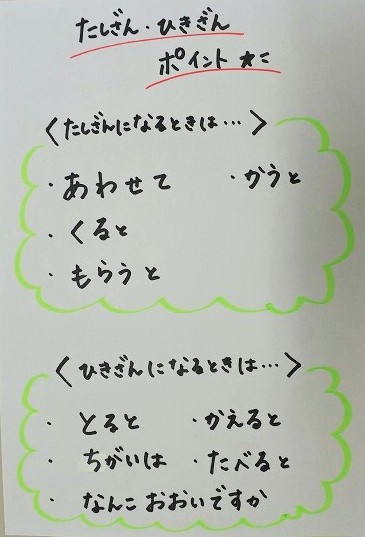 たしざん・ひきざん
ポイント★ミ
＜たしざんになるときは…＞
・あわせて ・かうと
・くると
・もらうと
＜ひきざんになるときは…＞
・とると ・かえると
・ちがいは ・たべると
・なんこ おおいですか